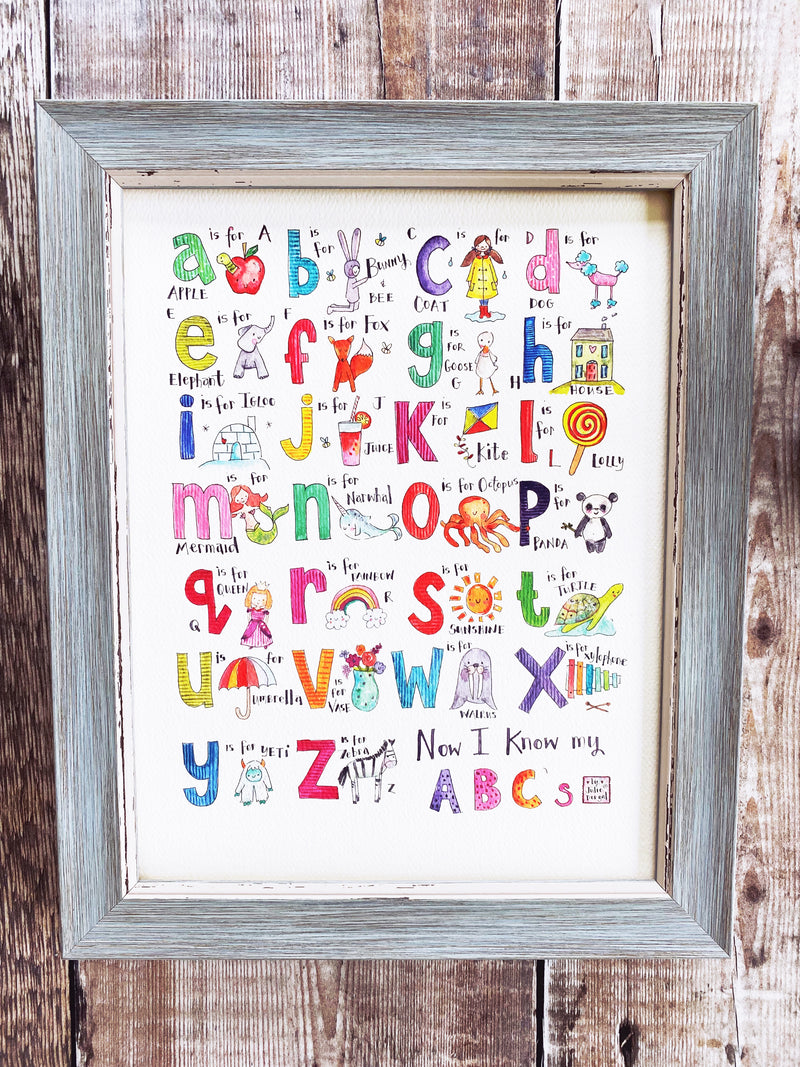 a is for A
APPLE
b is for Bunny & BEE
C
c is for
COAT
D
d is for
DOG
E
e is for
Elephant
F
f is for Fox
g IS FOR GOOSE
G
H
h is for
HOUSE
i is for IGLOO
j is for J
JUICE
K is For
Kite
l is for L
LOLLY
m is for
Mermaid
n is for Narwhal
o is for Octopus
p is for
PANDA
q is for QUEEN
Q
r is for RAINBOW
R
s is for
SUNSHINE
t is for TURTLE
u is for
umbrella
v is for VASE
w is for
WALRUS
X is for xylophone
y is for YETi
Z is for Zebra
Z
Now I Know my
ABC's